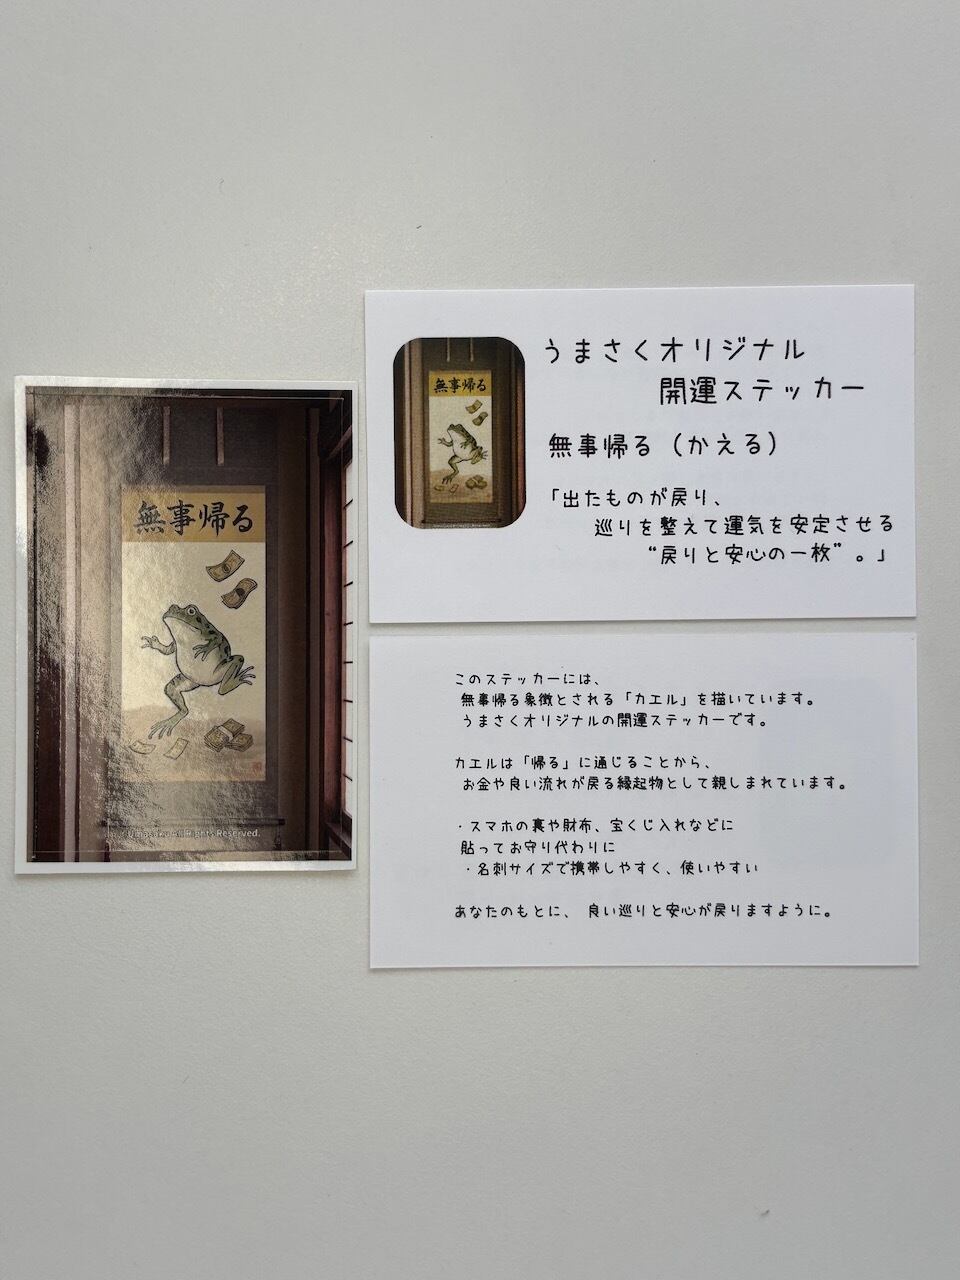 無事帰る
Umasaku All Rights Reserved.
無事帰る
うまさくオリジナル
開運ステッカー
無事帰る（かえる）
「出たものが戻り、
巡りを整えて運気を安定させる
“戻りと安心の一枚”。」
このステッカーには、
無事帰る象徴とされる「カエル」を描いています。
うまさくオリジナルの開運ステッカーです。
カエルは「帰る」に通じることから、
お金や良い流れが戻る縁起物として親しまれています。
・スマホの裏や財布、宝くじ入れなどに
貼ってお守り代わりに
・名刺サイズで携帯しやすく、使いやすい
あなたのもとに、 良い巡りと安心が戻りますように。